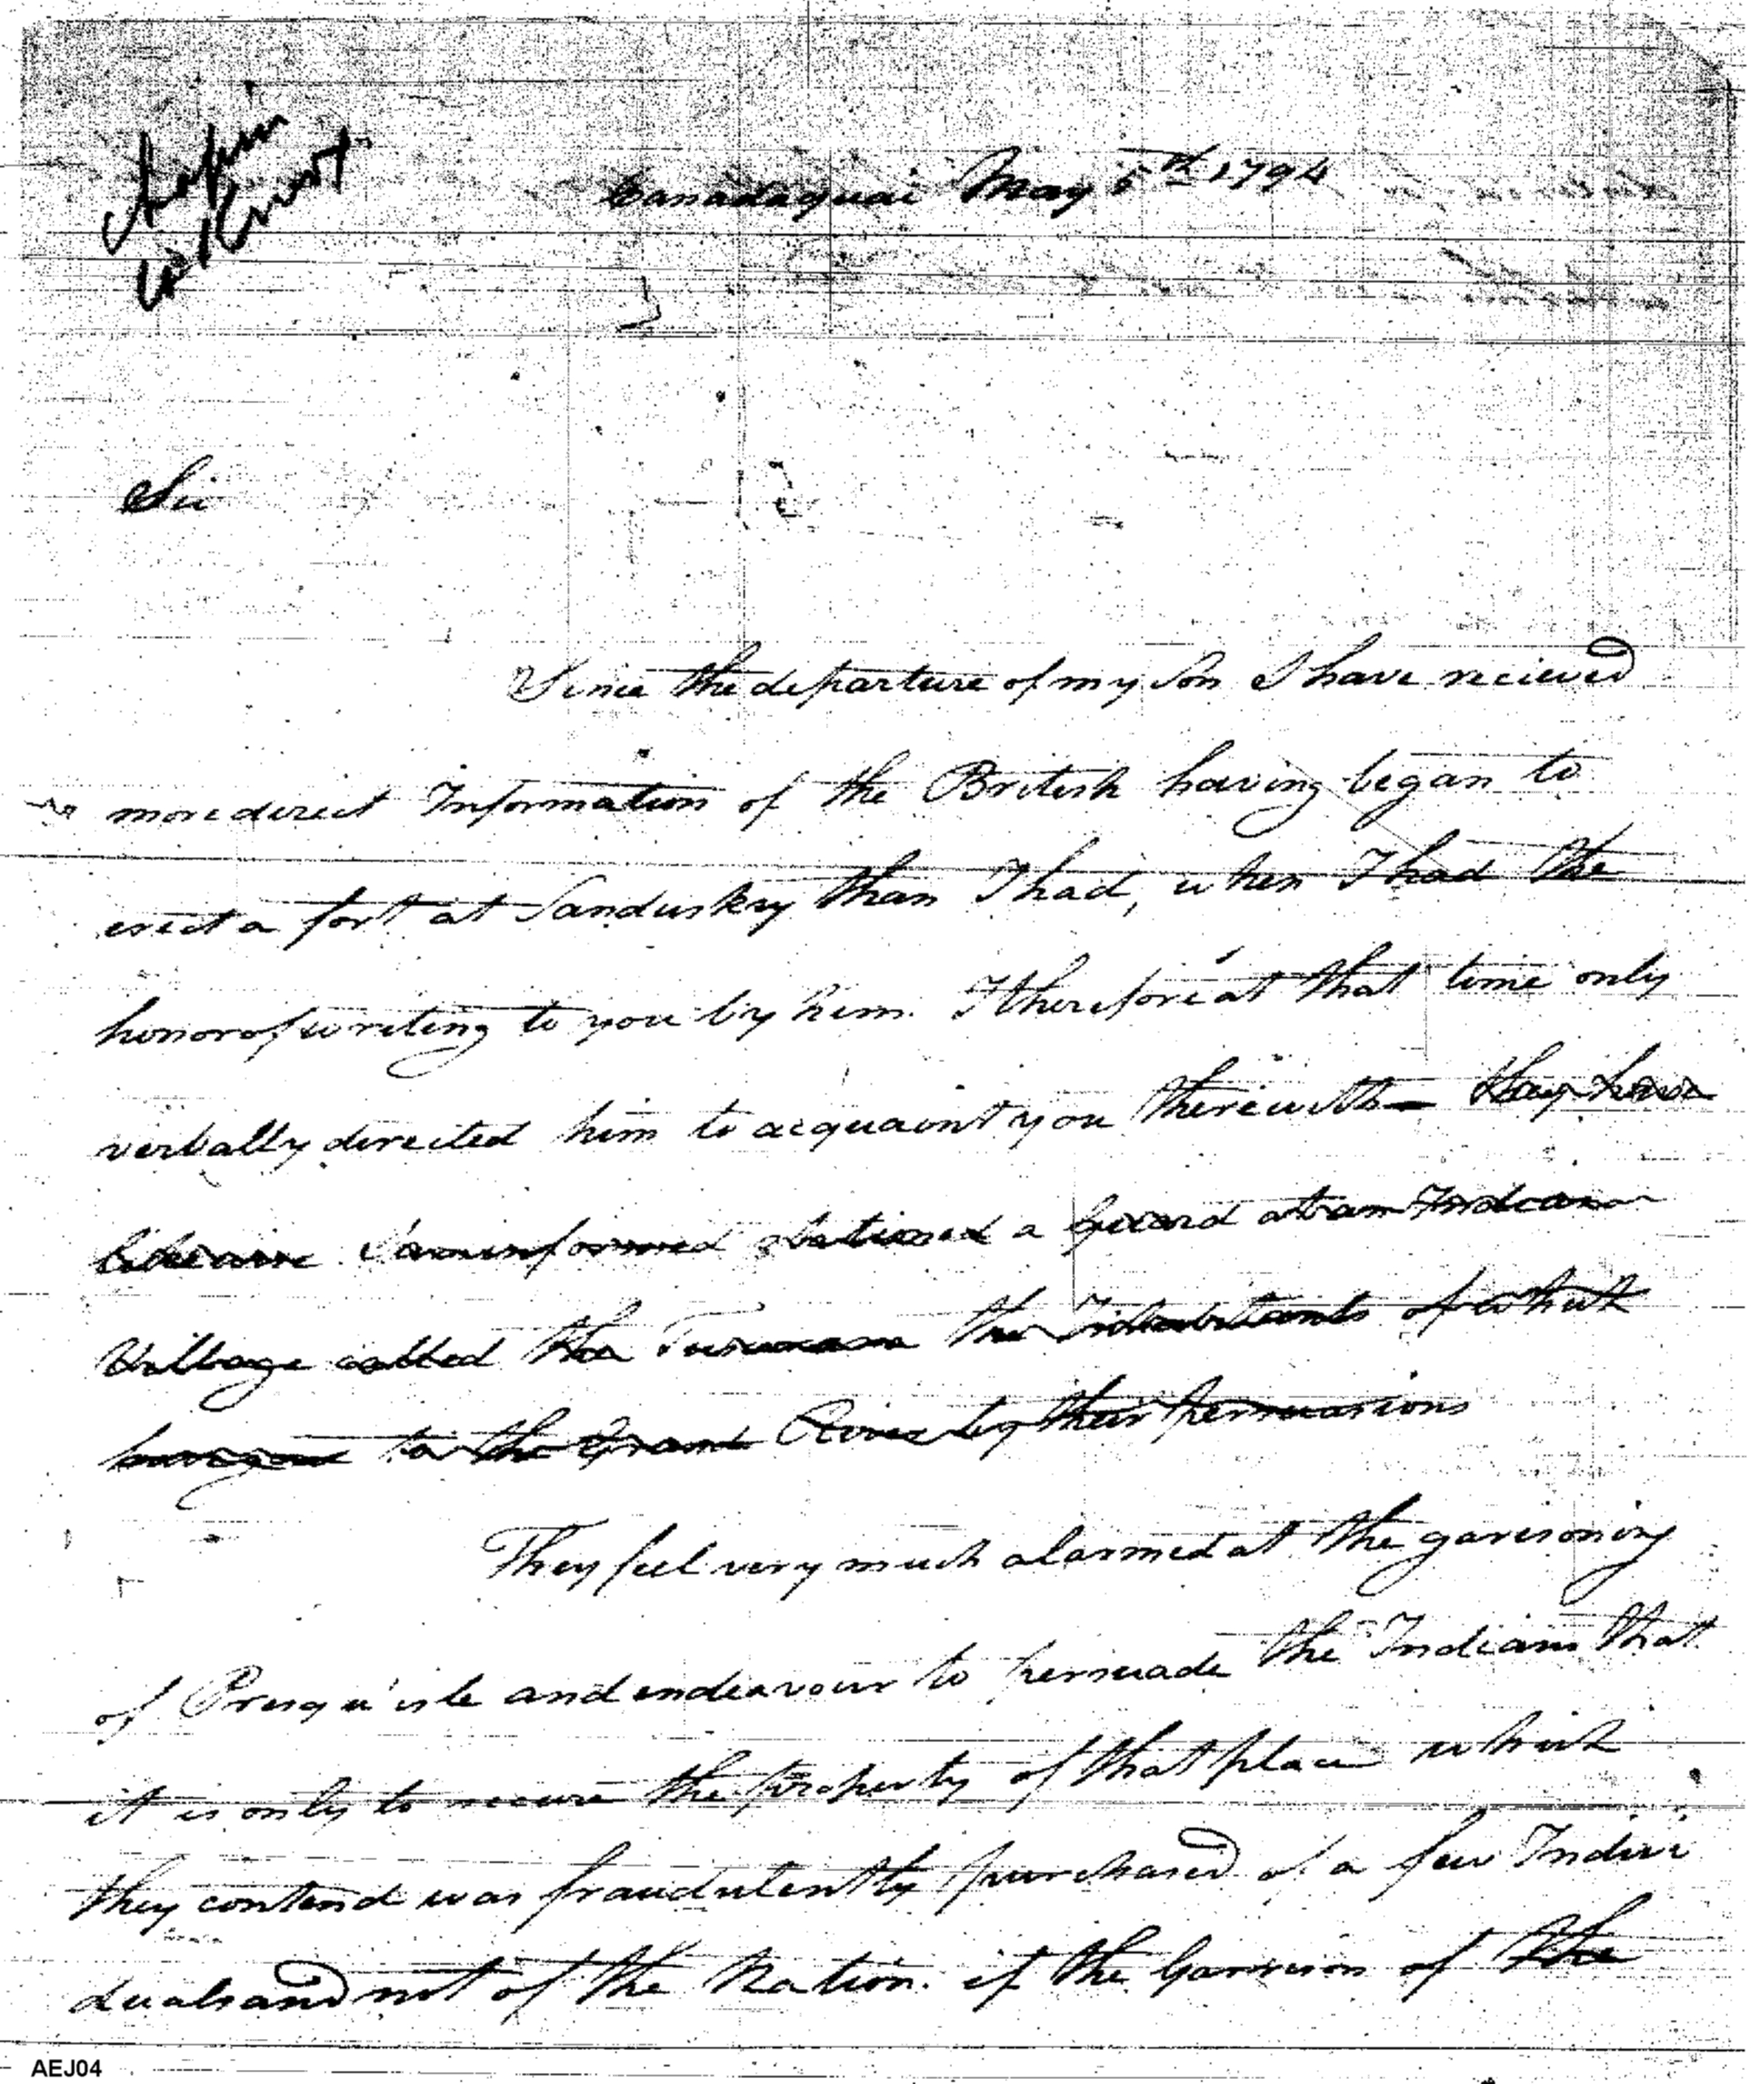 Canadaquai May 5th 1794
Sir
Since the departure of my Son I have recieved
more direct Information of the British having began to
erect a fort at Sandusky than I had, when I had the
honor of writing to you by him. I therefore at that time only
verbally directed him to acquaint you therewith — they have
likewise I am informed stationed a Guard at an Indian
Village called the the Inhabitants of which
have gone to the Grand River by their persuasions
They feel very much alarmed at the garisoning
of Presqu'isle and endeavour to persuade the Indians that
it is only to secure the property of that place which
they contend was fraudulently purchased of a few Indivi
duals and not of the Nation. if the Garrison of the
AEJ04